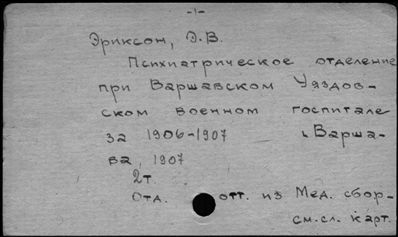 -1-
Эриксон, Э.В.
Психиатрическое отделение
при Варшавском Уяздов-
ском военном госпитале
за 1906-1907 Варша-
ва, 1907
2т.
Отд. отт. из Мед. сбор-
см.сл. карт.